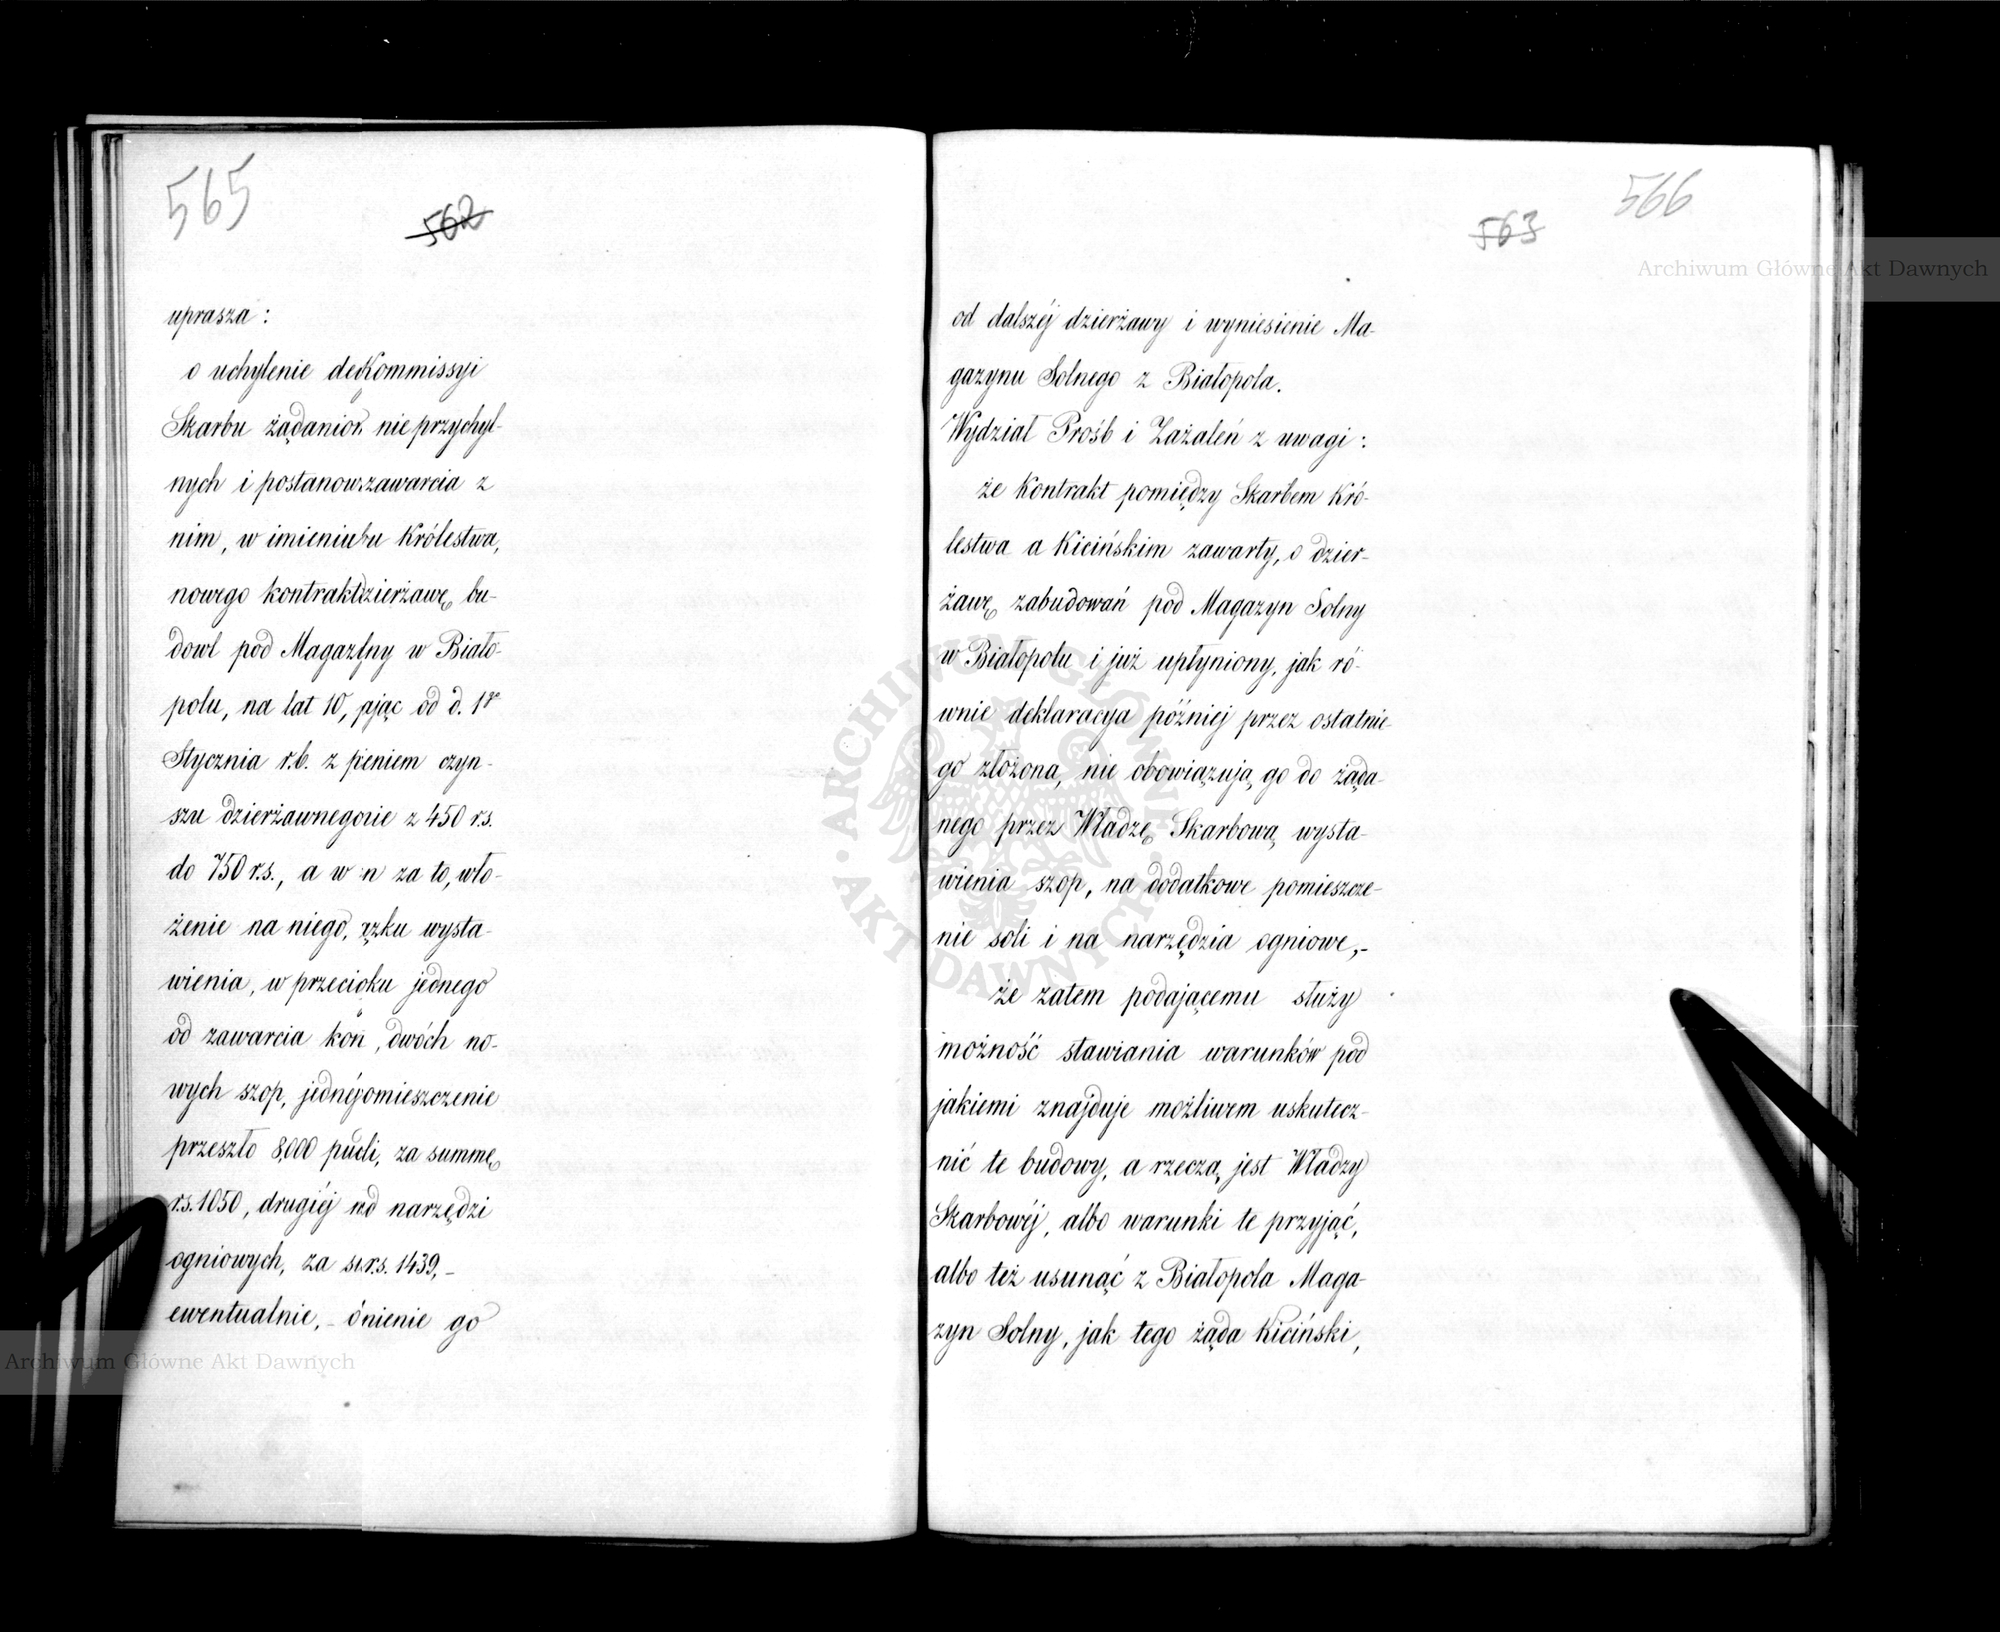 565
562
uprasza :
o uchylenie deKommissyi
Skarbu żądanior nieprzychyl-
nych i postanow.zawarcia z
nim, w imieniubu Królestwa,
nowego kontraktdzierżawę bu-
dowl pod Magazłny w Biało-
polu, na lat 10, ając od d. 1go
Stycznia r.b. z pieniem czyn-
szu dzierżawnegonie z 450 r.s.
do 750 r.s., a w n za to, wło-
żenie na niego, ązku wysta-
wienia, w przeciągku jednego
od zawarcia kon , dwóch no-
wych szop, jednéjomieszczenie
przeszło 8,000 pudli, za summę
r.s. 1050, drugiéj nd narzędzi
ogniowych, za sr.s. 1439, –
ewentualnie, – ónienie go
566
563
od dalszéj dzierżawy i wyniesienie Ma-
gazynu Solnego z Białopola.
Wydział Prośb i Zażaleń z uwagi :
że Kontrakt pomiędzy Skarbem Kró-
lestwa a Kicińskim zawarty, o dzier-
żawę zabudowań pod Magazyn Solny
w Białopolu i już upłyniony, jak ró-
wnie deklaracya później przez ostatnie-
go złożona, nie obowiązują go do żąda-
nego przez Władzę Skarbową wysta-
wienia szop, na dodatkowe pomieszcze-
nie soli i na narzędzia ogniowe, –
że zatem podającemu służy
możność stawiania warunków pod
jakiemi znajduje możliwem uskutecz-
nić te budowy, a rzeczą jest Władzy
Skarbowéj, albo warunki te przyjąć,
albo też usunąć z Białopola Maga-
zyn Solny, jak tego żąda Kiciński,
Archiwum Główne Akt Dawnych
Archiwum Główne Akt Dawnych
ARCHIWUM GŁÓWNE AKT DAWNYCH